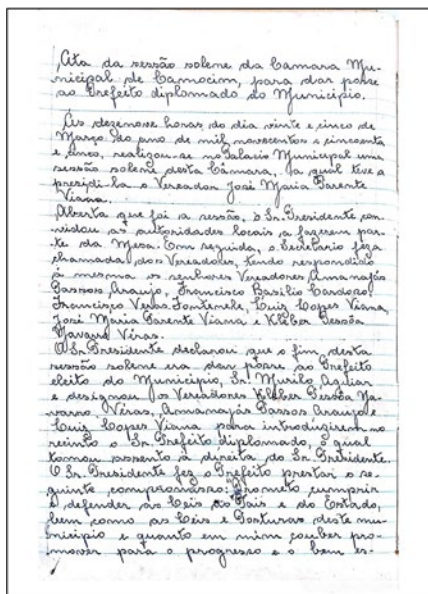 Ata da sessão solene da Camara Mu-
nicipal de Camocim, para dar posse
ao Prefeito diplomado do Município.
Às dezenove horas do dia vinte e cinco de
Março do ano de mil novecentos e cincoenta
e cinco, realizou-se no Palacio Municipal uma
sessão solene desta Câmara, a qual teve a
presidi-la o Vereador José Maria Parente
Viana.
Aberta que foi a sessão, o Sr. Presidente con-
vidou as autoridades locais a fazerem par-
te da Mesa. Em seguida, o Secretario fez a
chamada dos Vereadores, tendo respondido
à mesma os senhores Vereadores Amanajás
Passos Araujo, Francisco Basilio Cardoso,
Francisco Veras Fontenele, Luiz Lopes Viana,
José Maria Parente Viana e Kleber Pessôa
Navarro Véras.
O Sr. Presidente declarou que o fim desta
sessão solene era dar posse ao Prefeito
eleito do Município, Sr. Murilo Aguiar
e designou os Vereadores Kleber Pessôa Na-
varro Véras, Amanajás Passos Araujo e
Luiz Lopes Viana para introduzirem no
recinto o Sr. Prefeito diplomado, o qual
tomou assento à direita do Sr. Presidente.
O Sr. Presidente fez o Prefeito prestar o se-
guinte compromisso: Prometo cumprir
e defender as Leis do País e do Estado,
bem como as Leis e Posturas deste mu-
nicipio e quanto em mim couber pro-
mover para o progresso e o bem es-